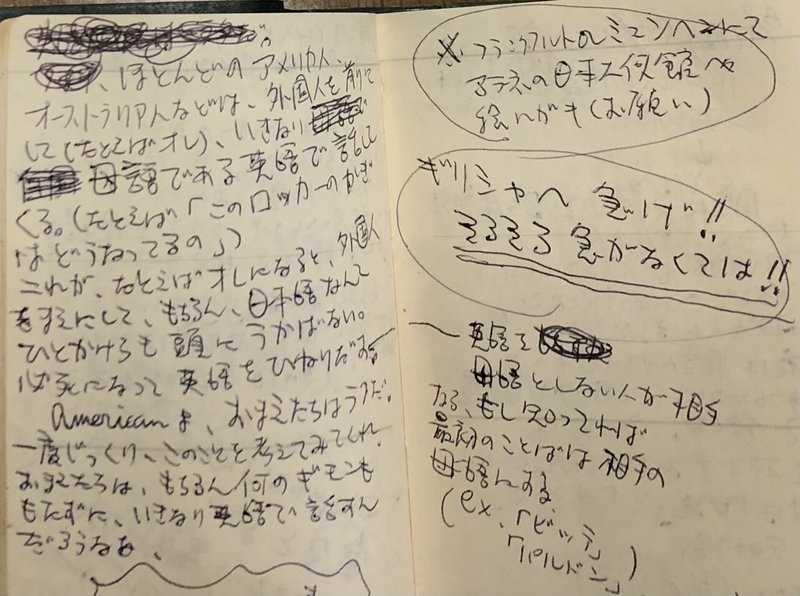 、ほとんどのアメリカ人、
オーストラリア人などは、外国人を前に
して(たとえばオレ)、いきなり
母語である英語で話して
くる。(たとえば「このロッカーのかぎ
はどうなってるの」)
これが、たとえばオレになると、外国人
をまえにして、もちろん、日本語なんて
ひとかけらも頭にうかばない。
必死になって英語をひねりだす。
Americanよ、おまえたちはラクだ。
一度じっくり、このことを考えてみてくれ。
おまえたちは、もちろん何のギモンも
もたずに、いきなり英語で話すん
だろうなあ、
※フランクフルトorミュンヘンにて
アテネの日本大使館へ
絵ハガキ(お願い)
ギリシャへ急げ!!
そろそろ急がなくては!!
英語を
母語としない人が相手
なら、もし知ってれば
最初のことばは相手の
母語にする
(ex.「ビッテ」
「パルドン」)